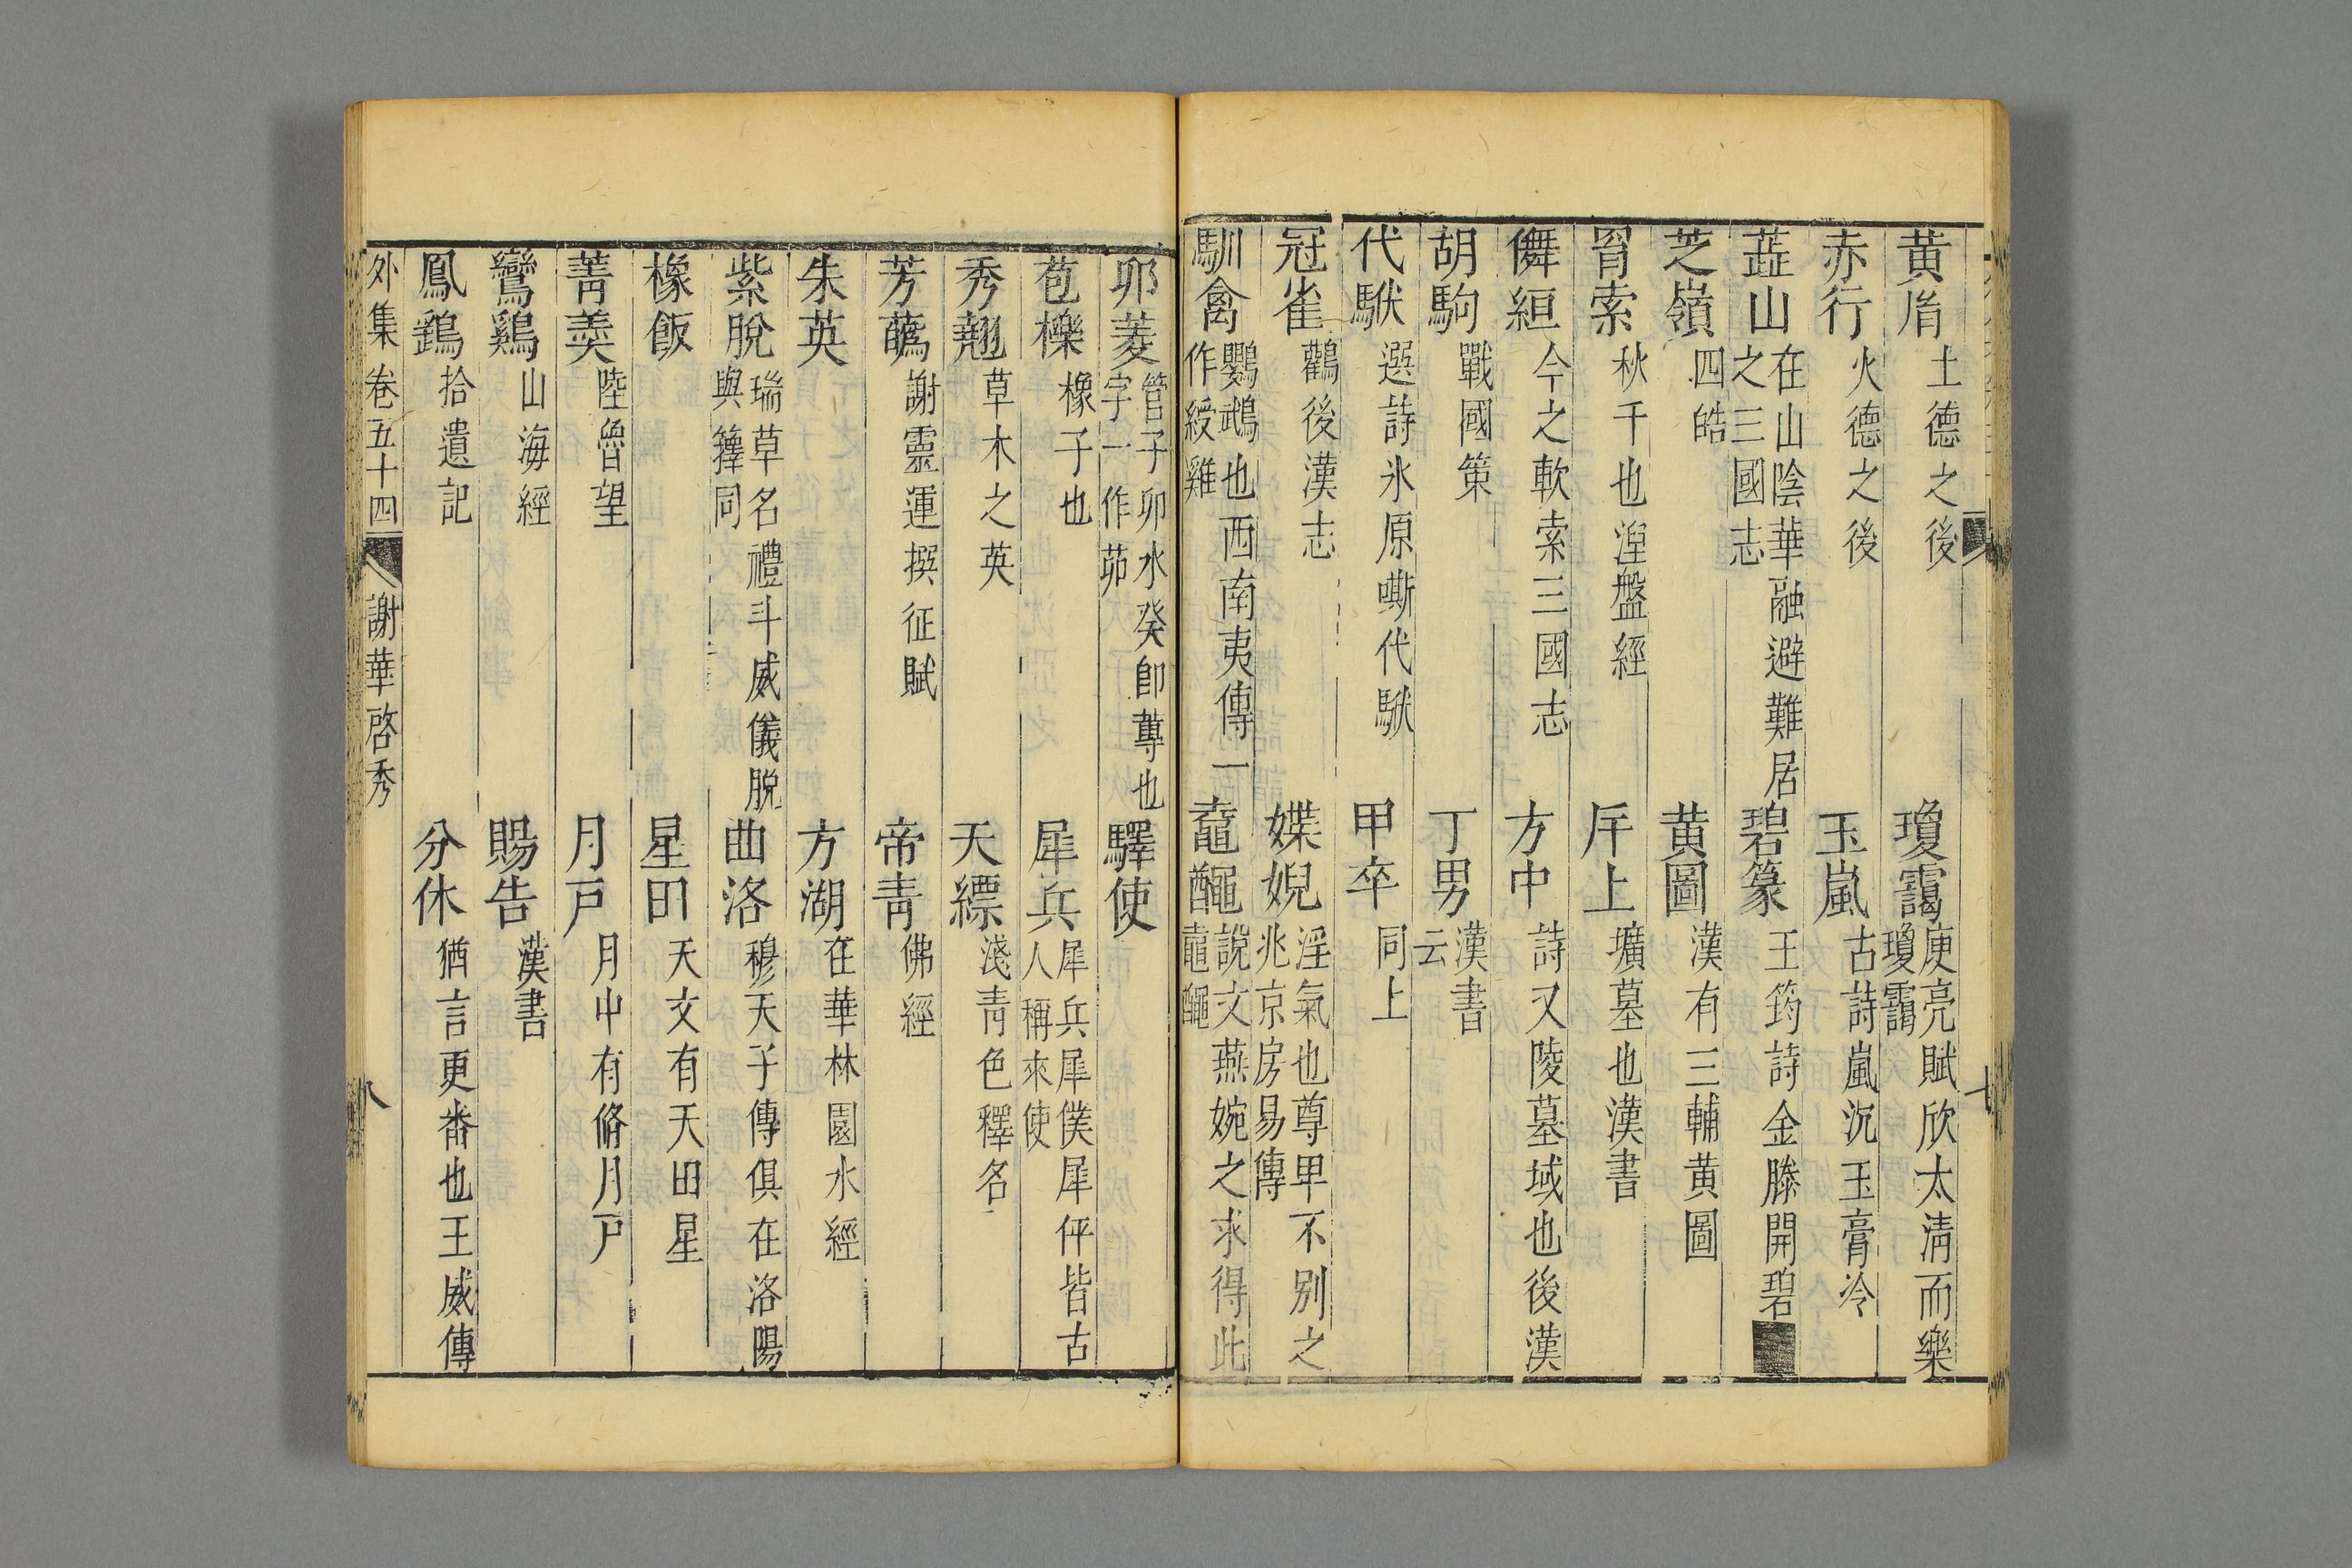 黄胄 土德之後 瓊靄 庾亮賦欣太清而樂瓊靄
赤行 火德之後 玉嵐 古詩嵐沉玉膏冷
蕋山 在山陰華融避難居之三國志 碧篆 王筠詩金滕開碧
芝嶺 四皓 黄圖 漢有三輔黄圖
罥索 秋千也湼盤經 上 壙墓也漢書
儛絙 今之軟索三國志 方中 詩又陵墓域也後漢
胡駒 戰國策 丁男 漢書云
代駇 選詩氷原嘶代駇 甲卒 同上
冠雀 鸛後漢志 媟婗 淫氣也尊卑不別之兆京房易傳
馴禽 鸚鵡也西南夷傳一作綬雞 說文燕婉之求得此
卵菱 管子卯水癸卽蓴也字一作茆 驛使
苞櫟 橡子也 犀兵 犀兵犀僕犀伻皆古人稱來使
秀翹 草木之英 天縹 淺靑色釋名
芳 謝靈運撰征賦 帝靑 佛經
朱英 方湖 在華林園水經
紫脫 瑞草名禮斗威儀脫與籜同 曲洛 穆天子傳俱在洛陽
橡飯 星田 天文有天田星
菁羮 陸魯望 月戸 月中有脩月戸
鸞鷄 山海經 賜告 漢書
鳳鵎 拾遺記 分休 猶言更番也王威傳
外集卷五十四 謝華啓秀 八